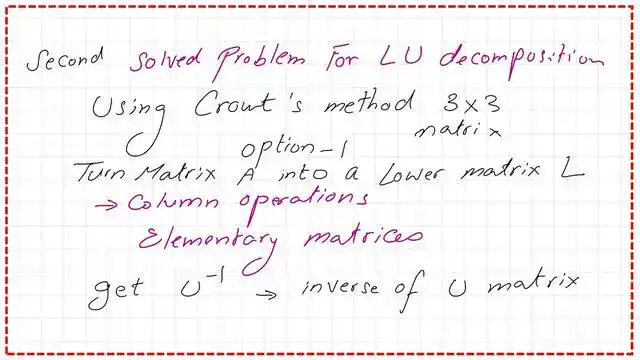 Second Solved Problem For LU decomposition
Using Crout's method 3x3
matrix
option-1
Turn Matrix A into a Lower matrix L
→ Column operations
Elementary matrices
get U⁻¹ → inverse of U matrix